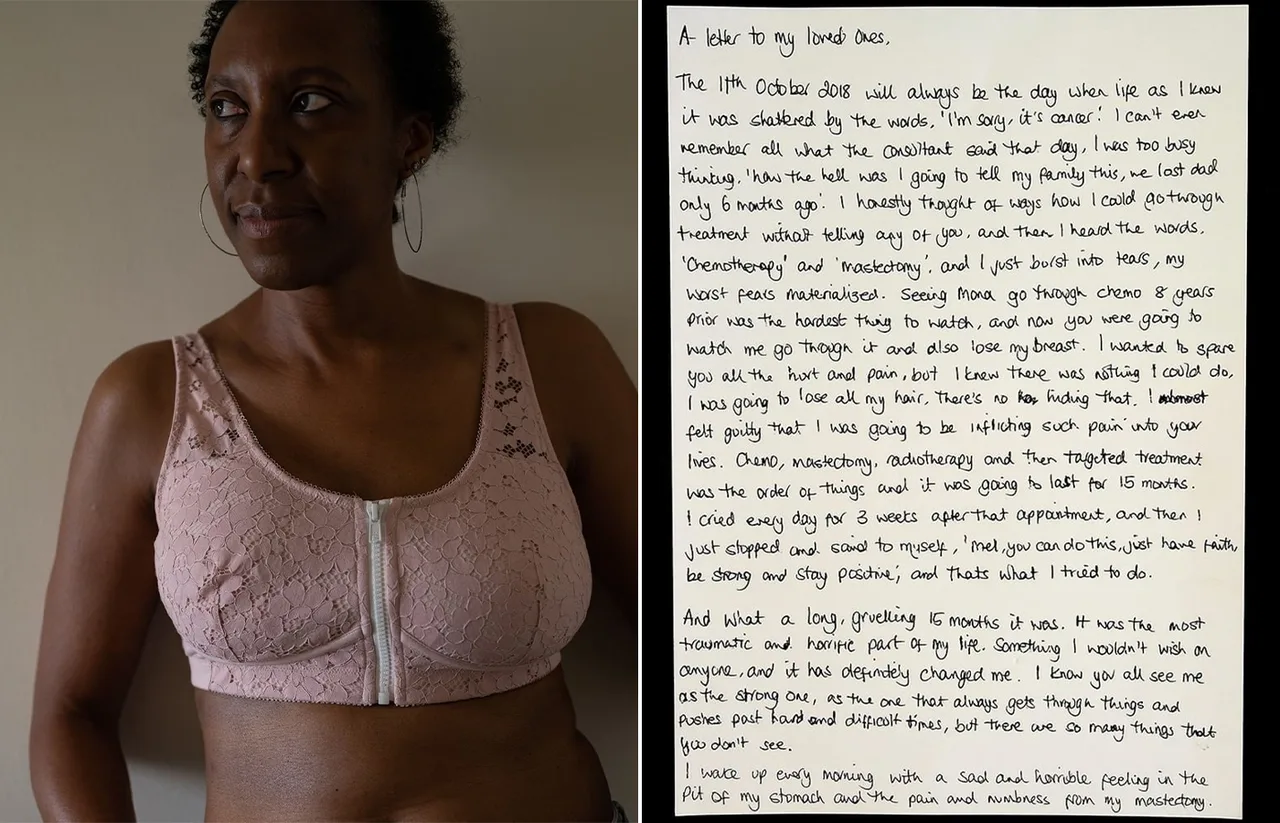 A letter to my loved ones,
The 11th October 2018 will always be the day when life as I knew
it was shattered by the words, 'I'm sorry, it's cancer'. I can't even
remember all what the consultant said that day, I was too busy
thinking, 'how the hell was I going to tell my family this, we lost dad
only 6 months ago'. I honestly thought of ways how I could go through
treatment without telling any of you, and then I heard the words,
'Chemotherapy' and 'mastectomy', and I just burst into tears, my
worst fears materialized. Seeing Mona go through chemo 8 years
prior was the hardest thing to watch, and now you were going to
watch me go through it and also lose my breast. I wanted to spare
you all the hurt and pain, but I knew there was nothing I could do,
I was going to lose all my hair, there's no hiding that. I almost
felt guilty that I was going to be inflicting such pain into your
lives. Chemo, mastectomy, radiotherapy and then targeted treatment
was the order of things and it was going to last for 15 months.
I cried every day for 3 weeks after that appointment, and then I
just stopped and said to myself, 'Mel, you can do this, just have faith,
be strong and stay positive', and thats what I tried to do.
And what a long, gruelling 15 months it was. It was the most
traumatic and horrific part of my life. Something I wouldn't wish on
anyone, and it has definitely changed me. I know you all see me
as the strong one, as the one that always gets through things and
pushes past hard and difficult times, but there are so many things that
you don't see.
I wake up every morning with a sad and horrible feeling in the
pit of my stomach and the pain and numbness from my mastectomy.